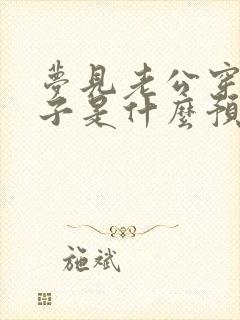 夢見老公穿
子是什麼預
施斌